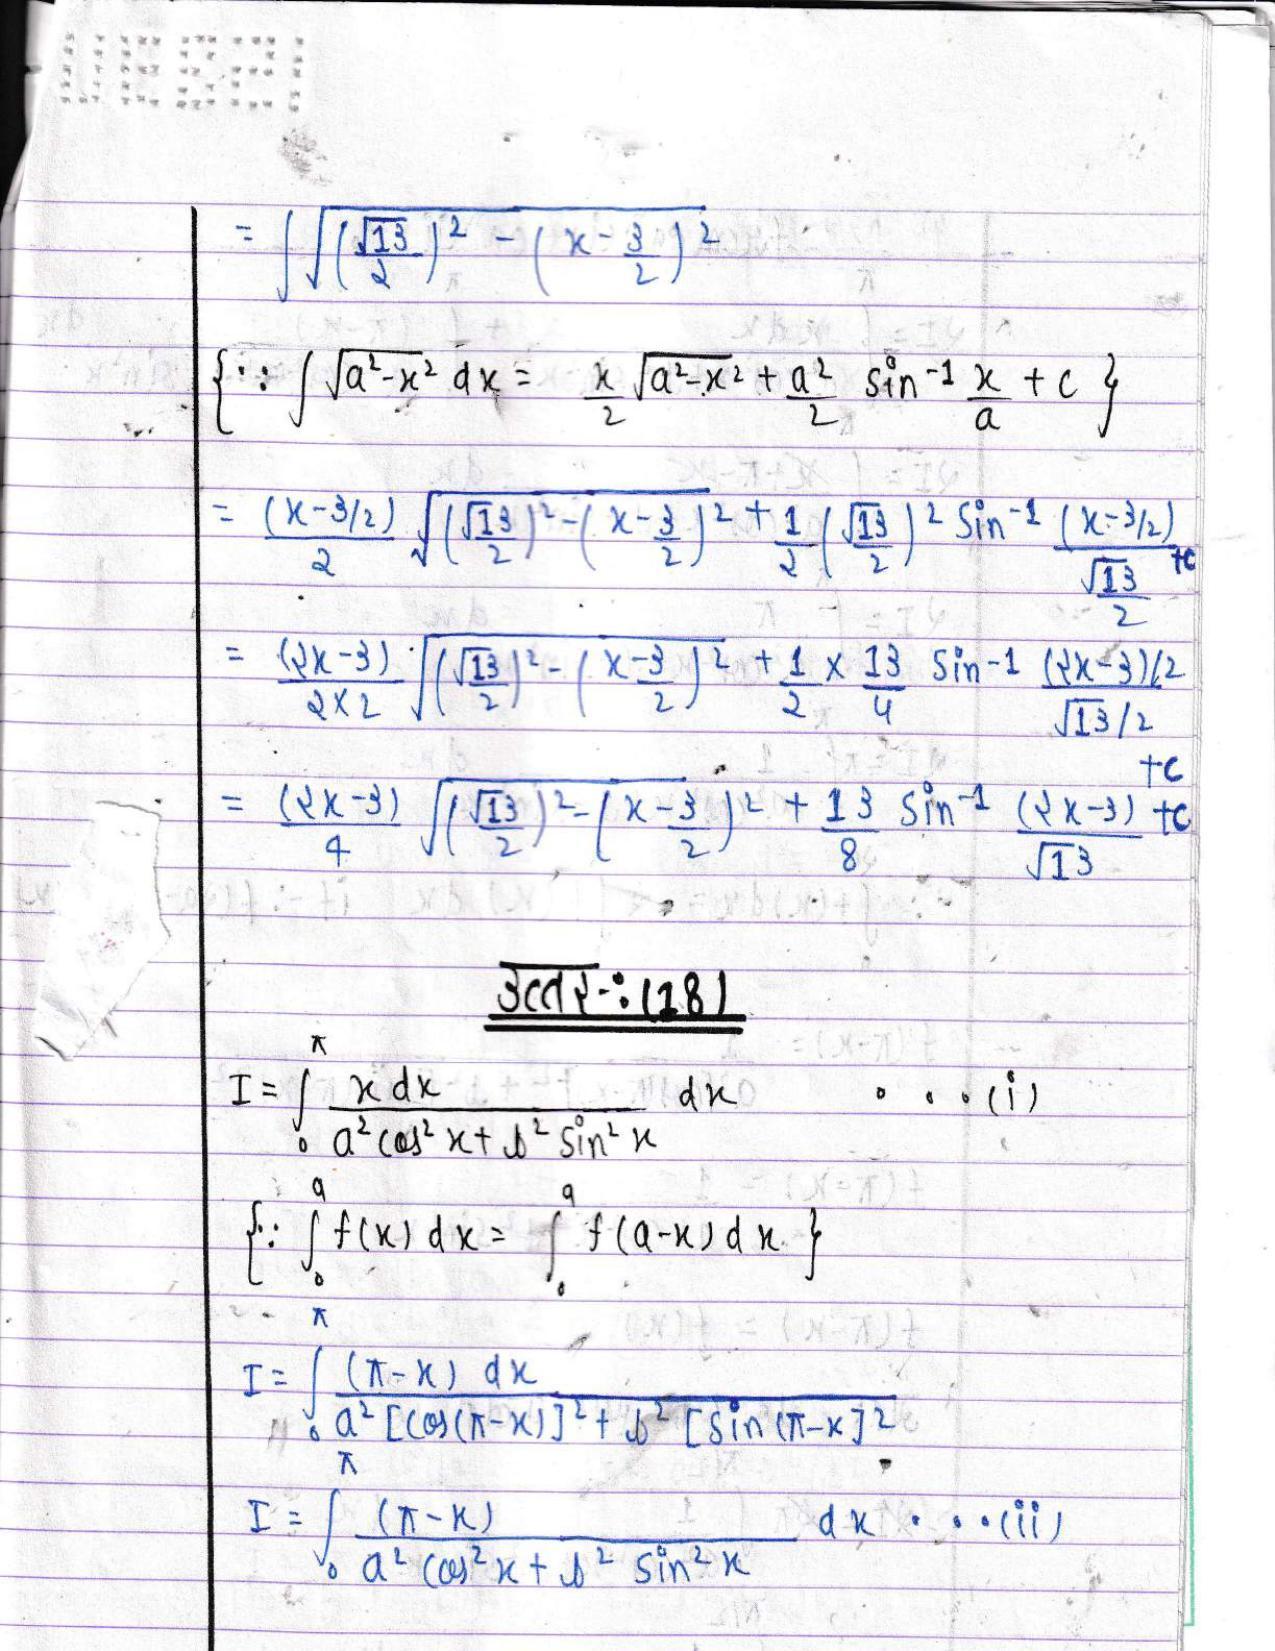 = ∫√((√13/2)² - (x - 3/2)²)
{∵ ∫√(a²-x²) dx = x/2 √(a²-x²) + a²/2 sin⁻¹ x/a + c}
= (x-3/2)/2 √((√13/2)² - (x - 3/2)²) + 1/2 (√13/2)² sin⁻¹ (x-3/2)/(√13/2) + c
= (2x-3)/(2×2) √((√13/2)² - (x-3/2)²) + 1/2 × 13/4 sin-1 ((2x-3)/2)/(√13/2) + c
= (2x-3)/4 √((√13/2)² - (x-3/2)²) + 13/8 sin⁻¹ (2x-3)/√13 + c
उत्तर-:(18)
I = ∫₀^π (x dx)/(a² cos² x + b² sin² x) dx ....(i)
{∵ ∫₀^a f(x) dx = ∫₀^a f(a-x) dx}
I = ∫₀^π (π-x) dx/(a² [cos(π-x)]² + b² [sin(π-x]²
I = ∫₀^π (π-x)/(a² cos² x + b² sin² x) dx ....(ii)